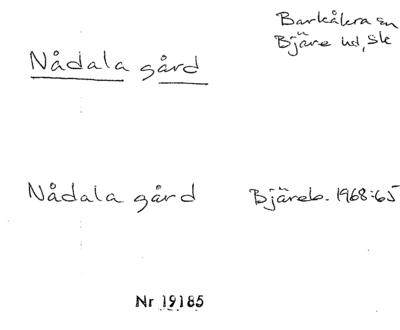 Barkåkra sn
Bjäre hd, Sk
Nådala gård
Nådala gård
Bjäreb. 1968:65
Nr 19185